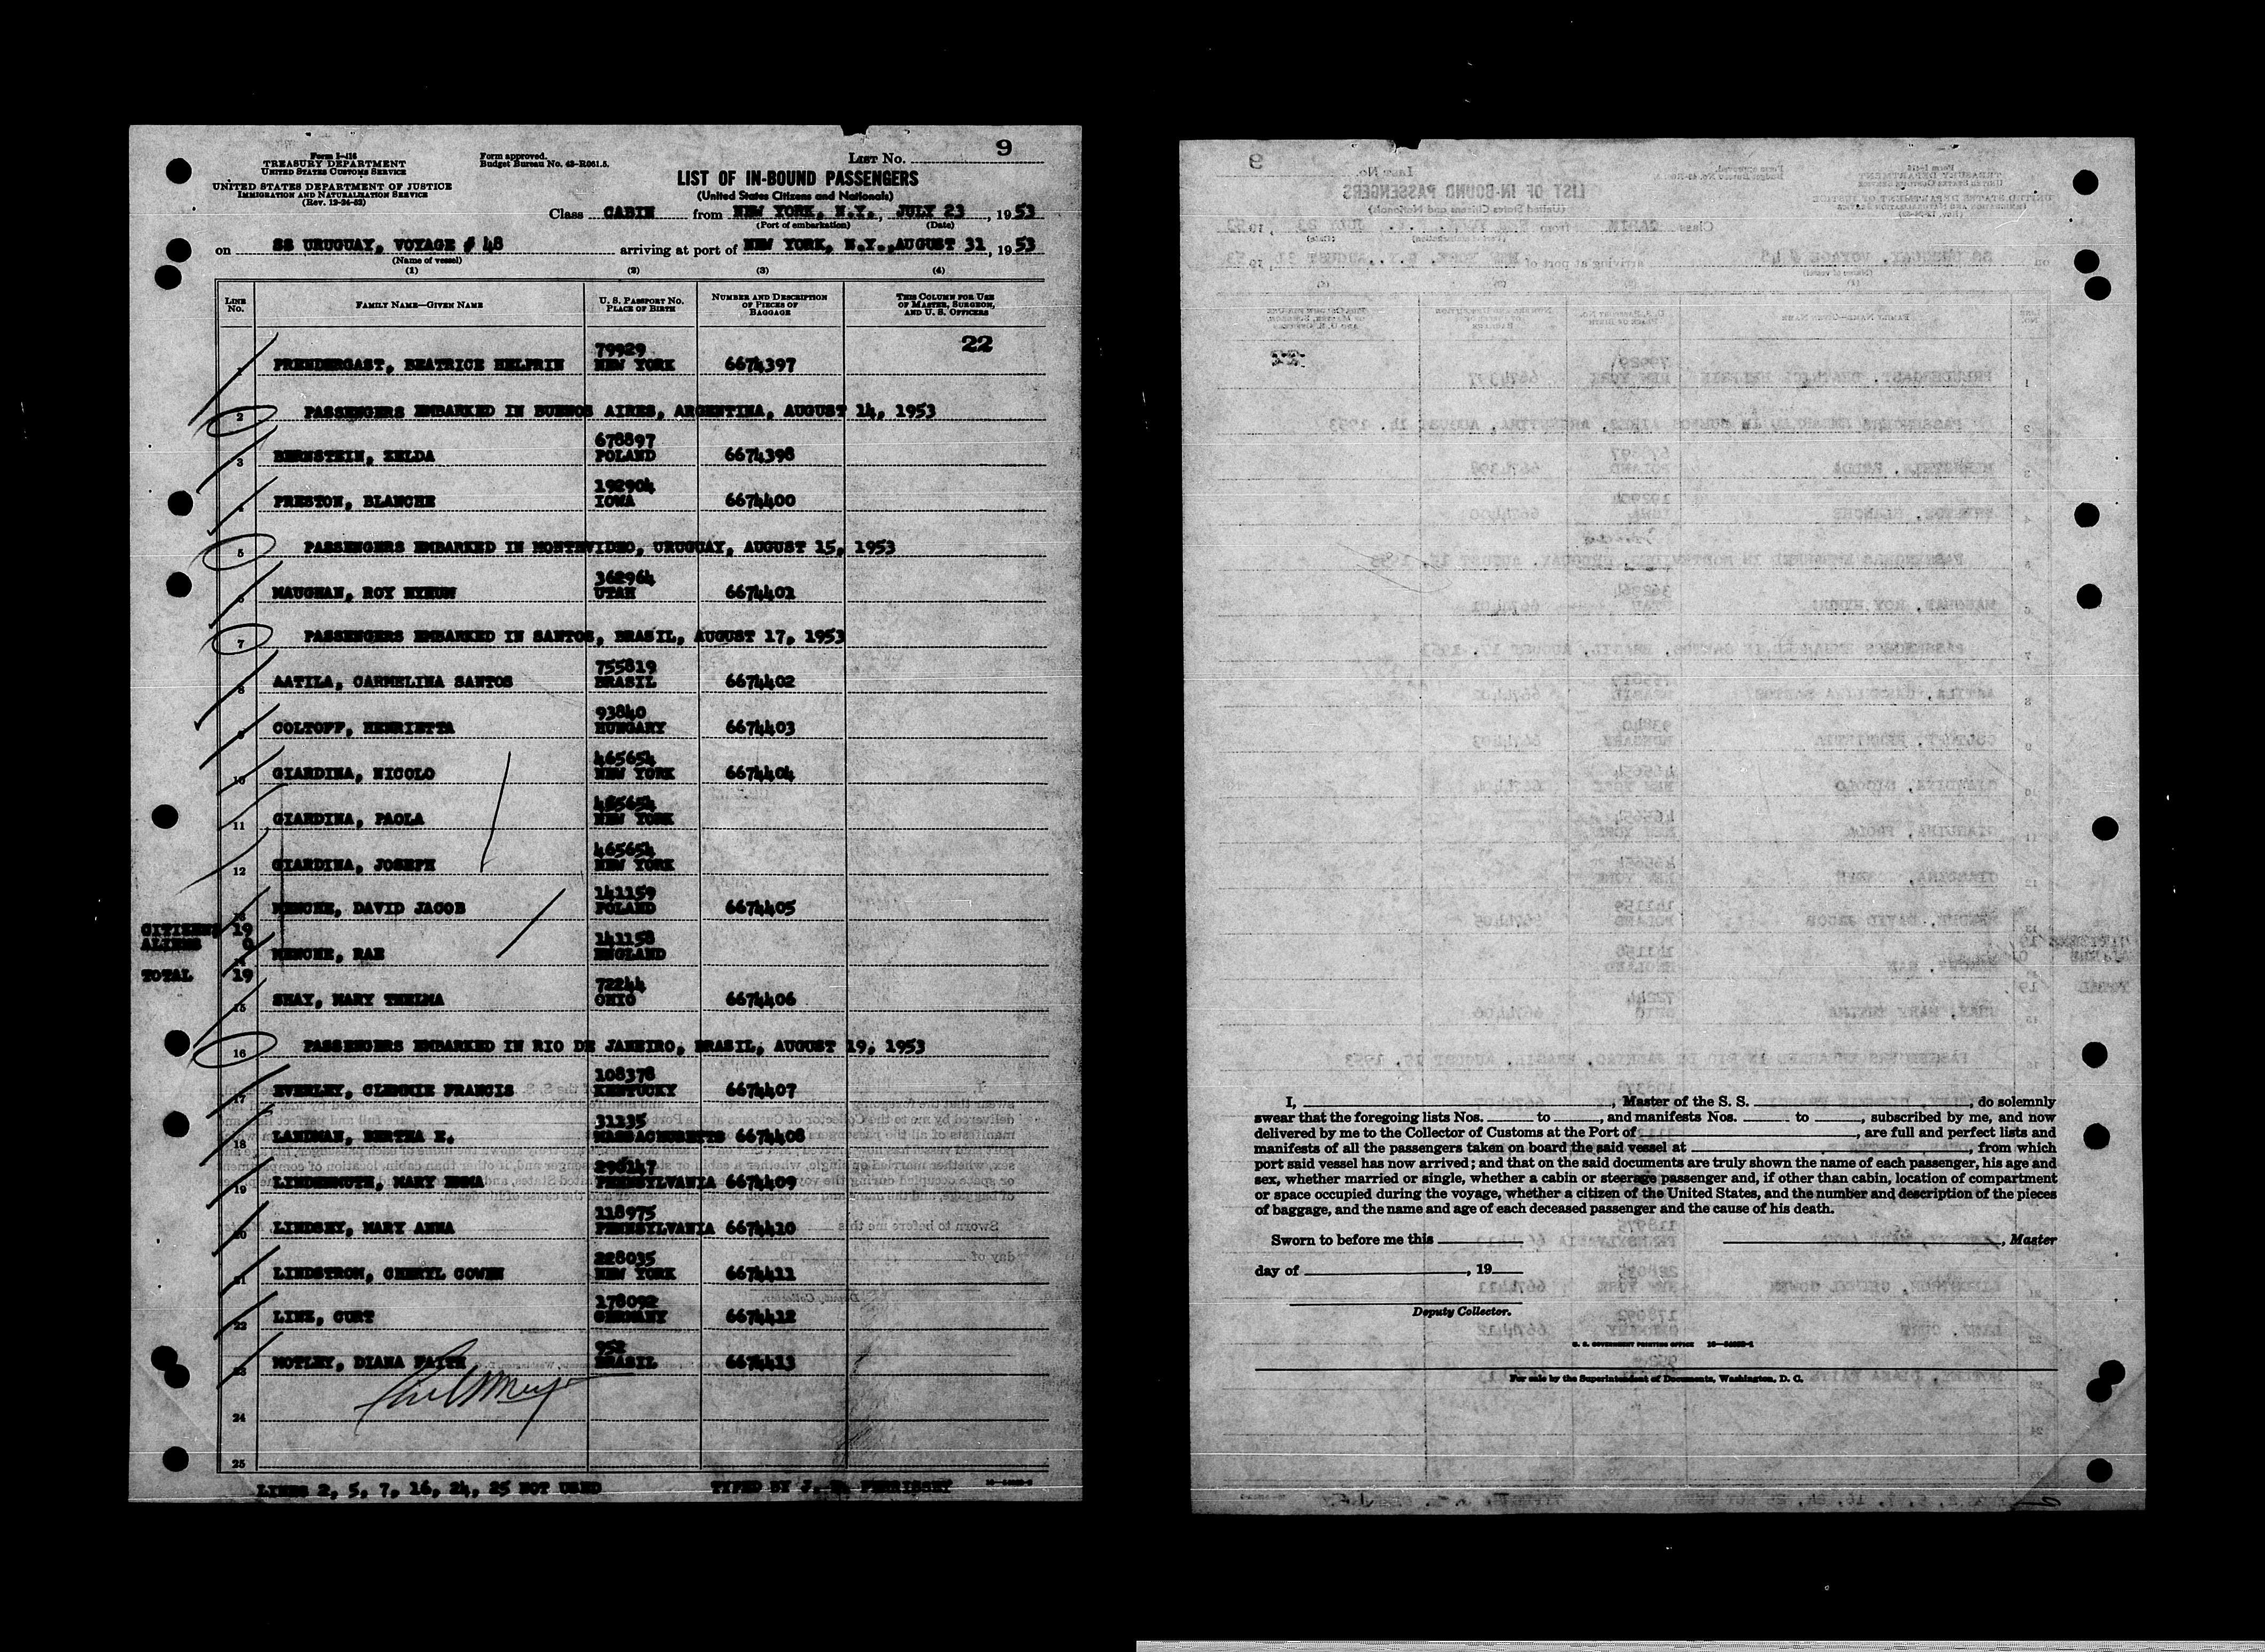 Form I-416
TREASURY DEPARTMENT
UNITED STATES CUSTOMS SERVICE
UNITED STATES DEPARTMENT OF JUSTICE
IMMIGRATION AND NATURALIZATION SERVICE
(Rev. 12-24-52)
Form approved.
Budget Bureau No. 43-R061.5.
LIST No. 9
LIST OF IN-BOUND PASSENGERS
(United States Citizens and Nationals)
Class CABIN from NEW YORK, N.Y., JULY 23, 1953
(Port of embarkation) (Date)
on SS URUGUAY, VOYAGE # 48 arriving at port of NEW YORK, N.Y., AUGUST 31, 1953
(Name of vessel)
(1) (2) (3) (4)
LINE No. FAMILY NAME—GIVEN NAME U. S. PASSPORT NO. PLACE OF BIRTH NUMBER AND DESCRIPTION OF PIECES OF BAGGAGE THIS COLUMN FOR USE OF MASTER, SURGEON, AND U. S. OFFICERS
22
1 PRENDERGAST, BEATRICE HELPRIN 79929 NEW YORK 6674397
2 PASSENGERS EMBARKED IN BUENOS AIRES, ARGENTINA, AUGUST 14, 1953
3 BERNSTEIN, ZELDA 678897 POLAND 6674398
4 PRESTON, BLANCHE 192904 IOWA 6674400
5 PASSENGERS EMBARKED IN MONTEVIDEO, URUGUAY, AUGUST 15, 1953
6 MAUGHAN, ROY HYRUM 362964 UTAH 6674401
7 PASSENGERS EMBARKED IN SANTOS, BRASIL, AUGUST 17, 1953
8 AATILA, CARMELINA SANTOS 755819 BRASIL 6674402
9 COLTOFF, HENRIETTA 93840 HUNGARY 6674403
10 GIARDINA, NICOLO 465654 NEW YORK 6674404
11 GIARDINA, PAOLA 465654 NEW YORK
12 GIARDINA, JOSEPH 465654 NEW YORK
13 MENCHE, DAVID JACOB 141159 POLAND 6674405
CITIZENS 19
ALIENS 0
14 MENCHE, RAE 141158 ENGLAND
TOTAL 19
15 SHAY, MARY THELMA 72244 OHIO 6674406
16 PASSENGERS EMBARKED IN RIO DE JANEIRO, BRASIL, AUGUST 19, 1953
17 EVERLEY, CLEMMIE FRANCIS 108378 KENTUCKY 6674407
18 LANDMAN, BERTHA E. 31235 MASSACHUSETTS 6674408
19 LINDENMUTH, MARY EMMA 298147 PENNSYLVANIA 6674409
20 LINDSEY, MARY ANNA 118975 PENNSYLVANIA 6674410
21 LINDSTROM, CHERYL GOWEN 228035 NEW YORK 6674411
22 LINZ, CURT 178092 GERMANY 6674412
23 MOTLEY, DIANA FAITH 952 BRASIL 6674413
24
25
LINES 2, 5, 7, 16, 24, 25 NOT USED TYPED BY J. PERRISSEY
I, , Master of the S. S. , do solemnly
swear that the foregoing lists Nos. to , and manifests Nos. to , subscribed by me, and now
delivered by me to the Collector of Customs at the Port of , are full and perfect lists and
manifests of all the passengers taken on board the said vessel at , from which
port said vessel has now arrived; and that on the said documents are truly shown the name of each passenger, his age and
sex, whether married or single, whether a cabin or steerage passenger and, if other than cabin, location of compartment
or space occupied during the voyage, whether a citizen of the United States, and the number and description of the pieces
of baggage, and the name and age of each deceased passenger and the cause of his death.
Sworn to before me this , Master
day of , 19
Deputy Collector.
U. S. GOVERNMENT PRINTING OFFICE
For sale by the Superintendent of Documents, Washington, D. C.